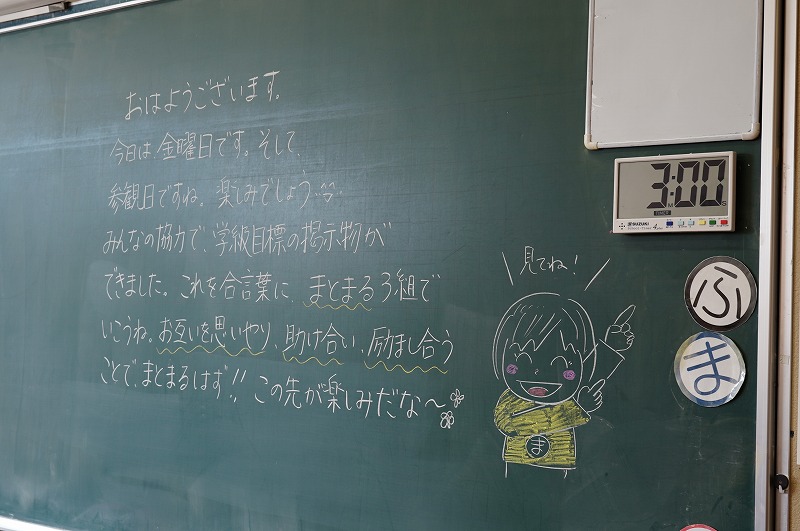 おはようございます。
今日は、金曜日です。そして、
参観日ですね。楽しみでしょう
みんなの協力で、学級目標の掲示物が
できました。これを合言葉に、まとまる3組で
いこうね。お互いを思いやり、助け合い、励まし合う
ことで、まとまるはず!! この先が楽しみだな〜
見てね!
ま
3:00
M
S
TIMER
SUZUKI
ふ
ま